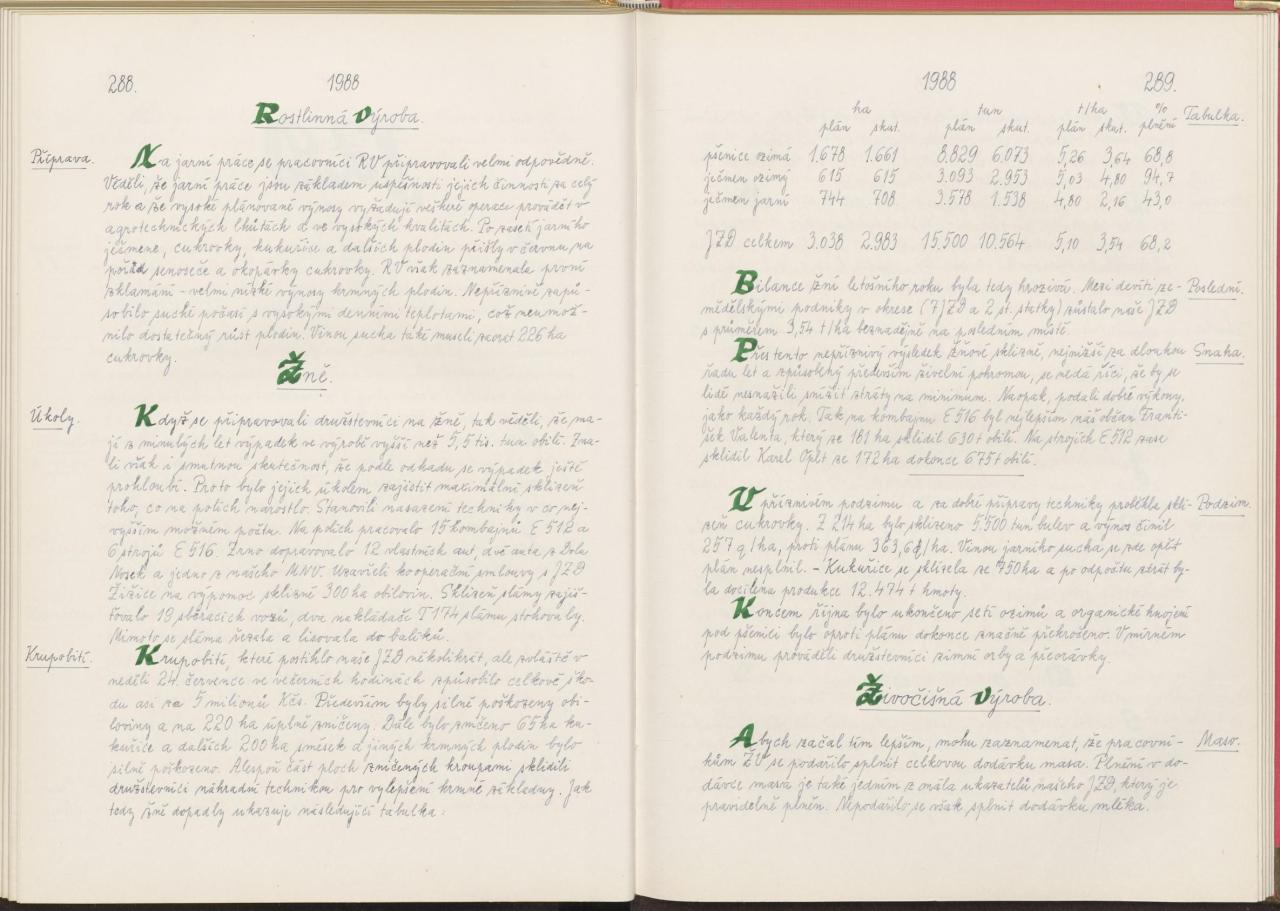 288.
1988
Rostlinná výroba.
Příprava.
Na jarní práce se pracovníci RV připravovali velmi odpovědně.
Věděli, že jarní práce jsou základem úspěšnosti jejich činnosti za celý
rok a že vysoké plánované výnosy vyžadují veškeré operace provádět v
agrotechnických lhůtách a ve vysokých kvalitách. Po zasetí jarního
ječmene, cukrovky, kukuřice a dalších plodin přišly v červnu na
pořad senoseče a okopávky cukrovky. RV však zaznamenala první
zklamání - velmi nízké výnosy krmných plodin. Nepříznivě způ-
sobilo suché počasí s vysokými denními teplotami, což neumož-
nilo dostatečný růst plodin. Vinou sucha také museli zaorat 226 ha
cukrovky.
Žně.
Úkoly.
Když se připravovali družstevníci na žně, tak věděli, že ma-
jí z minulých let výpadek ve výrobě vyšší než 5,5 tis. tun obilí. Zna-
li však i smutnou skutečnost, že podle odhadu se výpadek ještě
prohloubí. Proto bylo jejich úkolem zajistit maximální sklizeň
toho, co na polích narostlo. Stanovili nasazení techniky v co nej-
vyšším možném počtu. Na polích pracovalo 15 kombajnů E 512 a
6 strojů E 516. Zrno dopravovalo 12 vlastních aut, dvě auta z Dola
Nosek a jedno z našeho MNV. Uzavřeli kooperační smlouvy s JZD
Žižice na výpomoc sklizně 300 ha obilovin. Sklizeň slámy zajiš-
ťovalo 19 sběracích vozů, dva nakládače T 174 slámu stohovaly.
Mimoto se sláma řezala a lisovala do balíků.
Krupobití.
Krupobití, které postihlo naše JZD několikrát, ale zvláště v
neděli 24. července ve večerních hodinách způsobilo celkově ško-
du asi za 5 milionů Kčs. Především byly silně poškozeny obi-
loviny a na 220 ha úplně zničeny. Dále bylo zničeno 65 ha ku-
kuřice a dalších 200 ha směsek a jiných krmných plodin bylo
silně poškozeno. Alespoň část ploch zničených kroupami sklidili
družstevníci náhradní technikou pro vylepšení krmné základny. Jak
tedy žně dopadly ukazuje následující tabulka:
1988
289.
ha tun t/ha % Tabulka.
plán skut. plán skut. plán skut. plnění
pšenice ozimá 1.678 1.661 8.829 6.073 5,26 3,64 68,8
ječmen ozimý 615 615 3.093 2.953 5,03 4,80 94,7
ječmen jarní 744 708 3.578 1.538 4,80 2,16 43,0
JZD celkem 3.038 2.983 15.500 10.564 5,10 3,54 68,2
Bilance žní letošního roku byla tedy hrozivá. Mezi devíti ze-
Poslední.
mědělskými podniky v okrese (7 JZD a 2 st. statky) zůstalo naše JZD
s průměrem 3,54 t/ha beznadějně na posledním místě.
Přes tento nepříznivý výsledek žňové sklizně, nejnižší za dlouhou
Snaha.
řadu let a způsobený především živelní pohromou, se nedá říci, že by se
lidé nesnažili snížit ztráty na minimum. Naopak, podali dobré výkony,
jako každý rok. Tak na kombajnu E 516 byl nejlepším náš občan Franti-
šek Valenta, který ze 181 ha sklidil 630 t obilí. Na strojích E 512 zase
sklidil Karel Oplt ze 172 ha dokonce 675 t obilí.
V příznivém podzimu a za dobré přípravy techniky proběhla skli-
Podzim.
zeň cukrovky. Z 214 ha bylo sklizeno 5.500 tun bulev a výnos činil
257 q/ha, proti plánu 363,6 q/ha. Vinou jarního sucha se zde opět
plán nesplnil. - Kukuřice se sklízela ze 750 ha a po odpočtu ztrát by-
la docílena produkce 12.474 t hmoty.
Koncem října bylo ukončeno setí ozimů a organické hnojení
pod pšenici bylo oproti plánu dokonce značně překročeno. V mírném
podzimu prováděli družstevníci zimní orby a předorávky.
Živočišná výroba.
Abych začal tím lepším, mohu zaznamenat, že pracovní-
Maso.
kům ŽV se podařilo splnit celkovou dodávku masa. Plnění v do-
dávce masa je také jedním z mála ukazatelů našeho JZD, který je
pravidelně plněn. Nepodařilo se však splnit dodávku mléka.